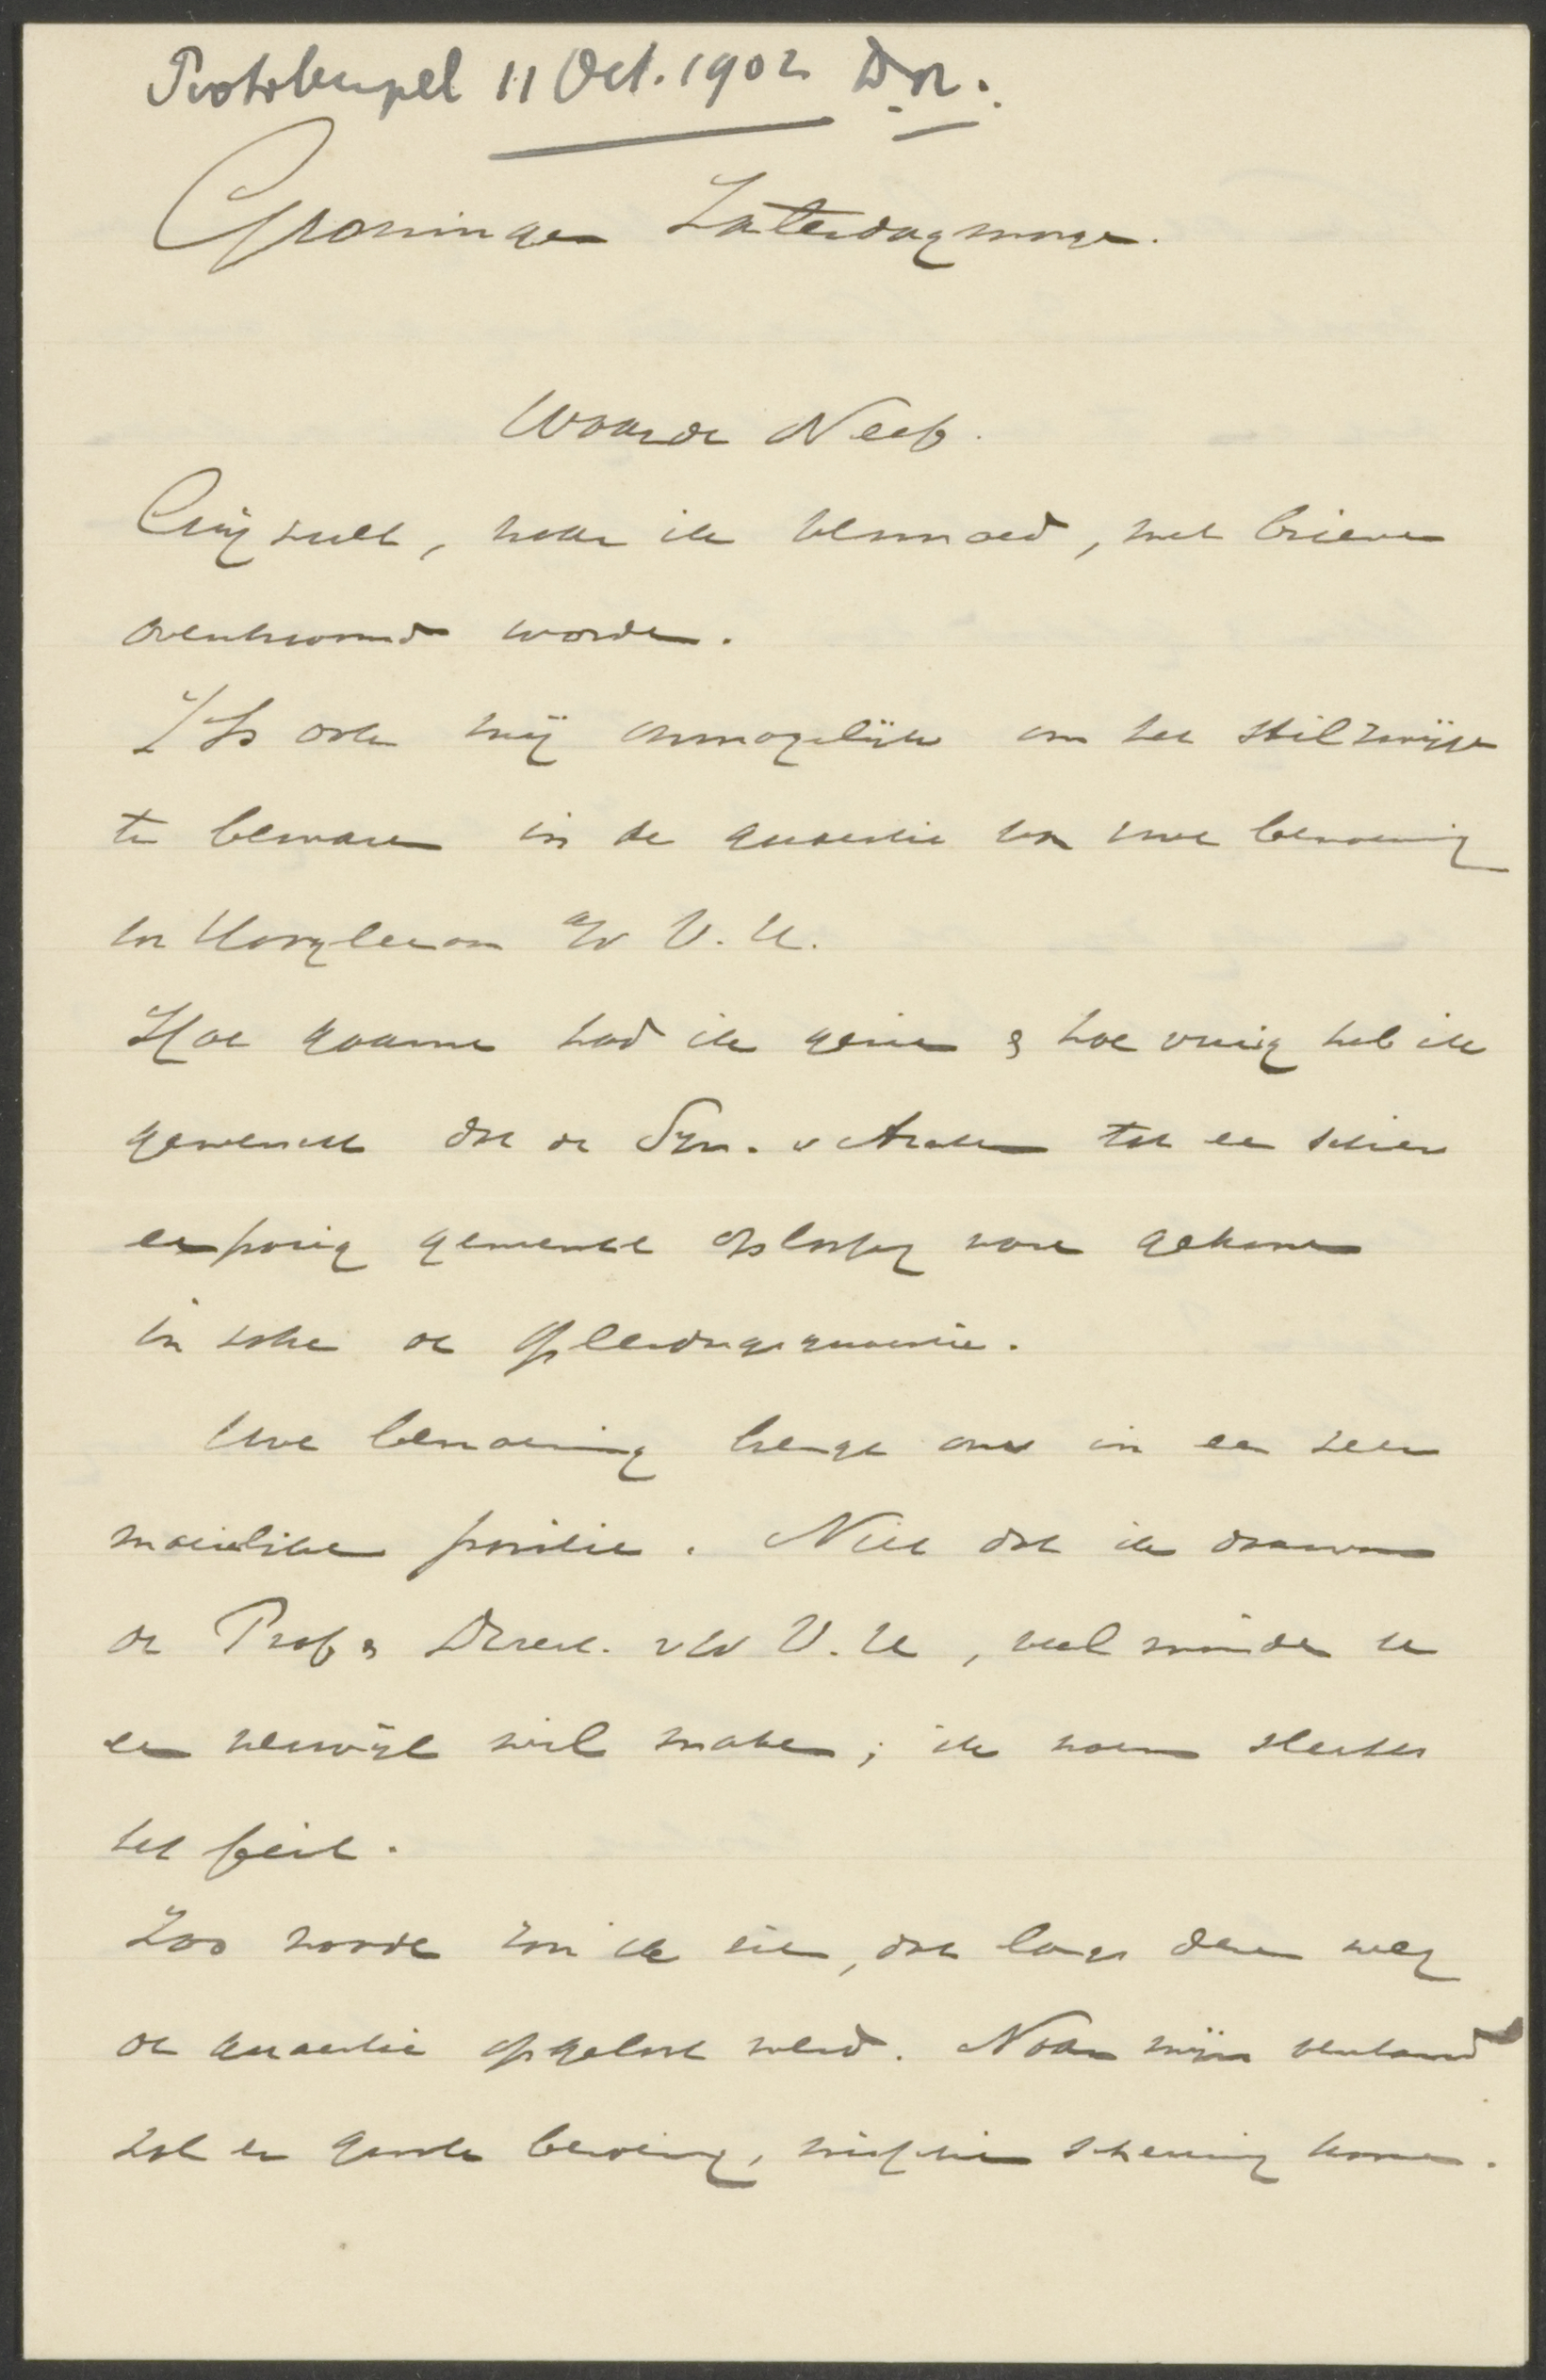 Poststempel 11 Oct. 1902 Dr.
Groningen Zaterdagmorgen.
Waarde Neef.
Gij zult, naar ik vermoed, met brieven
overstroomd worden.
't Is ook mij onmogelijk om het stilzwijgen
te bewaren in de quaestie van uwe benoeming
tot Hoogleeraar a/d V. U.
Hoe gaarne had ik gezien & hoe vurig heb ik
gewenscht dat de Syn. v Arnhem tot een schier
eenparig gewenschte oplossing ware gekomen
in zake de Opleidingsquaestie.
Uwe benoeming brengt ons in een zeer
moeielijke positie. Niet dat ik daarvan
de Prof & Direct. v/d V. U, veel minder U
een verwijt wil maken; ik noem slechts
het feit.
Zoo noode zou ik zien, dat langs dezen weg
de quaestie opgelost werd. Naar mijn verstand
zal er groote beroering, misschien scheuring komen.